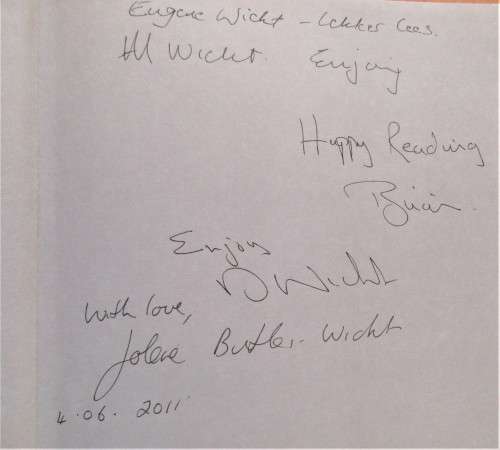 Eugene Wicht - Lekker Lees.
Wicht. Enjoy
Happy Reading
Brian.
Enjoy
D Wicht
With love,
Jolene Butler-Wicht
4.06.2011